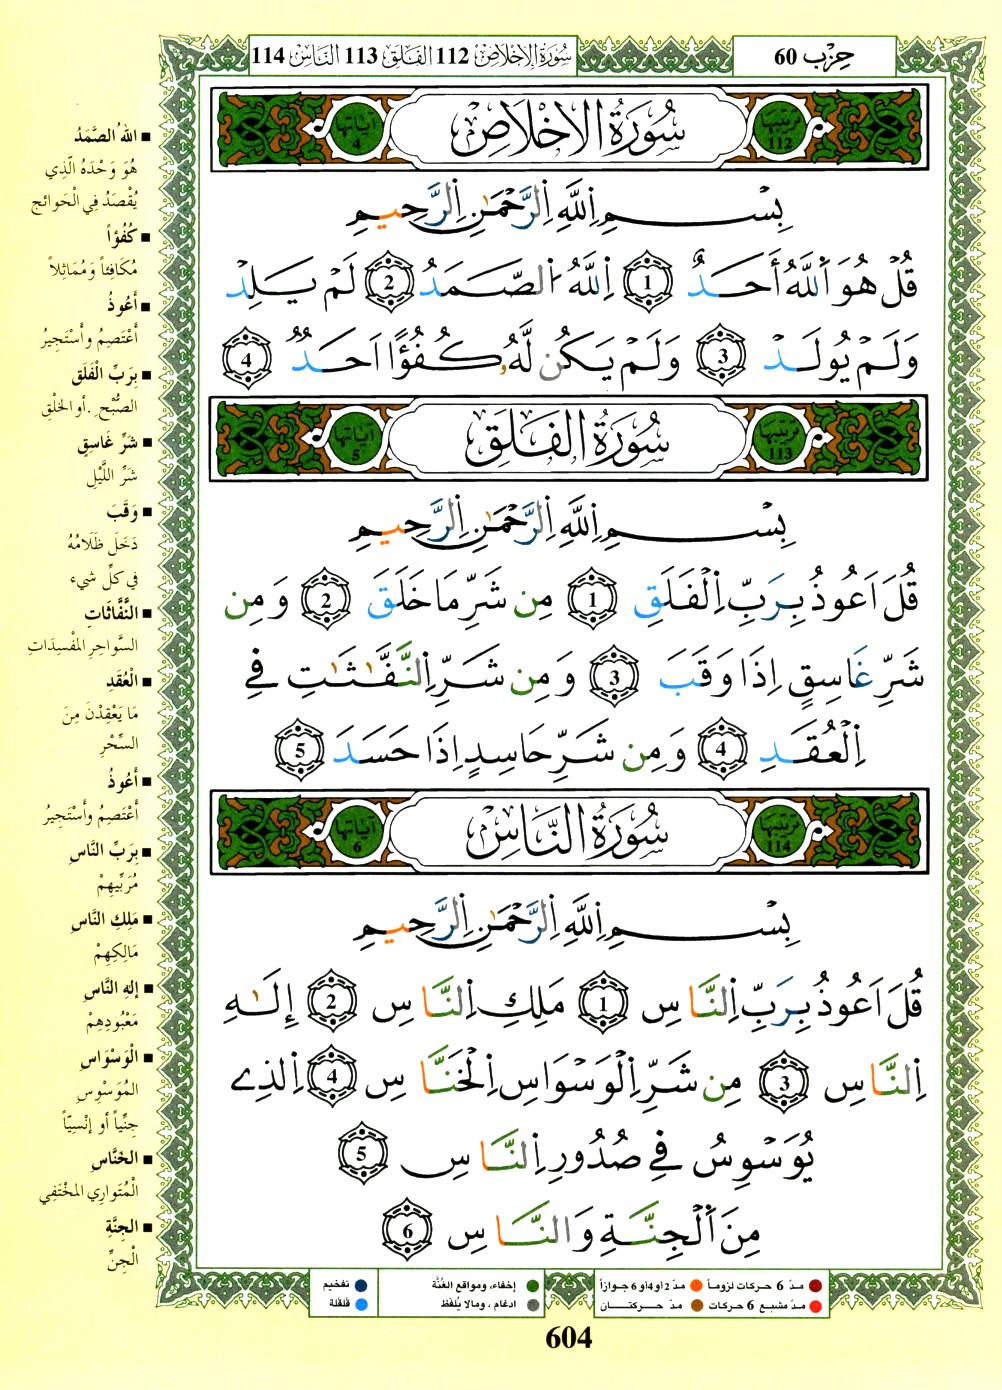 حِزْب 60
سُورَةُ الإِخْلَاصِ 112 الفَلَقِ 113 النَّاسِ 114
تَرتيبُها 112
سُورَةُ الِاخْلَاصِ
آيَاتُها 4
بِسْمِ اِللَّهِ اِلرَّحْمَٰنِ اِلرَّحِيمِ
قُلْ هُوَ اَللَّهُ أَحَدٌ 1 اِللَّهُ اُلصَّمَدُ 2 لَمْ يَلِدْ
وَلَمْ يُولَدْ 3 وَلَمْ يَكُن لَّهُۥ كُفُؤًا اَحَدٌ 4
تَرتيبُها 113
سُورَةُ الفَلَقِ
آيَاتُها 5
بِسْمِ اِللَّهِ اِلرَّحْمَٰنِ اِلرَّحِيمِ
قُلَ اَعُوذُ بِرَبِّ اِلْفَلَقِ 1 مِن شَرِّ مَا خَلَقَ 2 وَمِن
شَرِّ غَاسِقٍ اِذَا وَقَبَ 3 وَمِن شَرِّ اِلنَّفَّٰثَٰتِ فِے
اِلْعُقَدِ 4 وَمِن شَرِّ حَاسِدٍ اِذَا حَسَدَ 5
تَرتيبُها 114
سُورَةُ النَّاسِ
آيَاتُها 6
بِسْمِ اِللَّهِ اِلرَّحْمَٰنِ اِلرَّحِيمِ
قُلَ اَعُوذُ بِرَبِّ اِلنَّاسِ 1 مَلِكِ اِلنَّاسِ 2 إِلَٰهِ
اِلنَّاسِ 3 مِن شَرِّ اِلْوَسْوَاسِ اِلْخَنَّاسِ 4 اِلذِے
يُوَسْوِسُ فِے صُدُورِ اِلنَّاسِ 5
مِنَ اَلْجِنَّةِ وَالنَّاسِ 6
■ اللهُ الصَّمَدُ
هُوَ وَحْدَهُ الَّذِي
يُقْصَدُ فِي الْحَوائج
■ كُفُؤاً
مُكَافِئاً وَمُمَاثِلاً
■ أَعُوذُ
أَعْتَصِمُ وأَسْتَجِيرُ
■ بِرَبِّ الْفَلَقِ
الصُّبْحِ . أو الخلْقِ
■ شَرِّ غَاسِقٍ
شَرِّ اللَّيْلِ
■ وَقَبَ
دَخَلَ ظَلَامُهُ
فِي كلِّ شيء
■ النَّفَّاثَاتِ
السَّواحِرِ المُفْسِدَاتِ
■ الْعُقَدِ
مَا يَعْقِدْنَ مِنَ
السِّحْرِ
■ أَعُوذُ
أَعْتَصِمُ وأَسْتَجِيرُ
■ بِرَبِّ النَّاسِ
مُرَبِّيهِمْ
■ مَلِكِ النَّاسِ
مَالِكِهِمْ
■ إلهِ النَّاسِ
مَعْبُودِهِمْ
■ الْوَسْوَاسِ
المُوَسْوِسِ
جِنِّياً أو إنْسِيّاً
■ الخَنَّاسِ
الْمُتَوارِي المخْتَفِي
■ الجِنَّةِ
الْجِنِّ
مدّ 6 حركات لزوماً
مدّ 2 أو 4 أو 6 جوازاً
إخفاء، ومواقع الغُنَّة
تفخيم
مدّ مشبع 6 حركات
مدّ حركتان
ادغام ، ومالا يُلفَظ
قلقلة
604